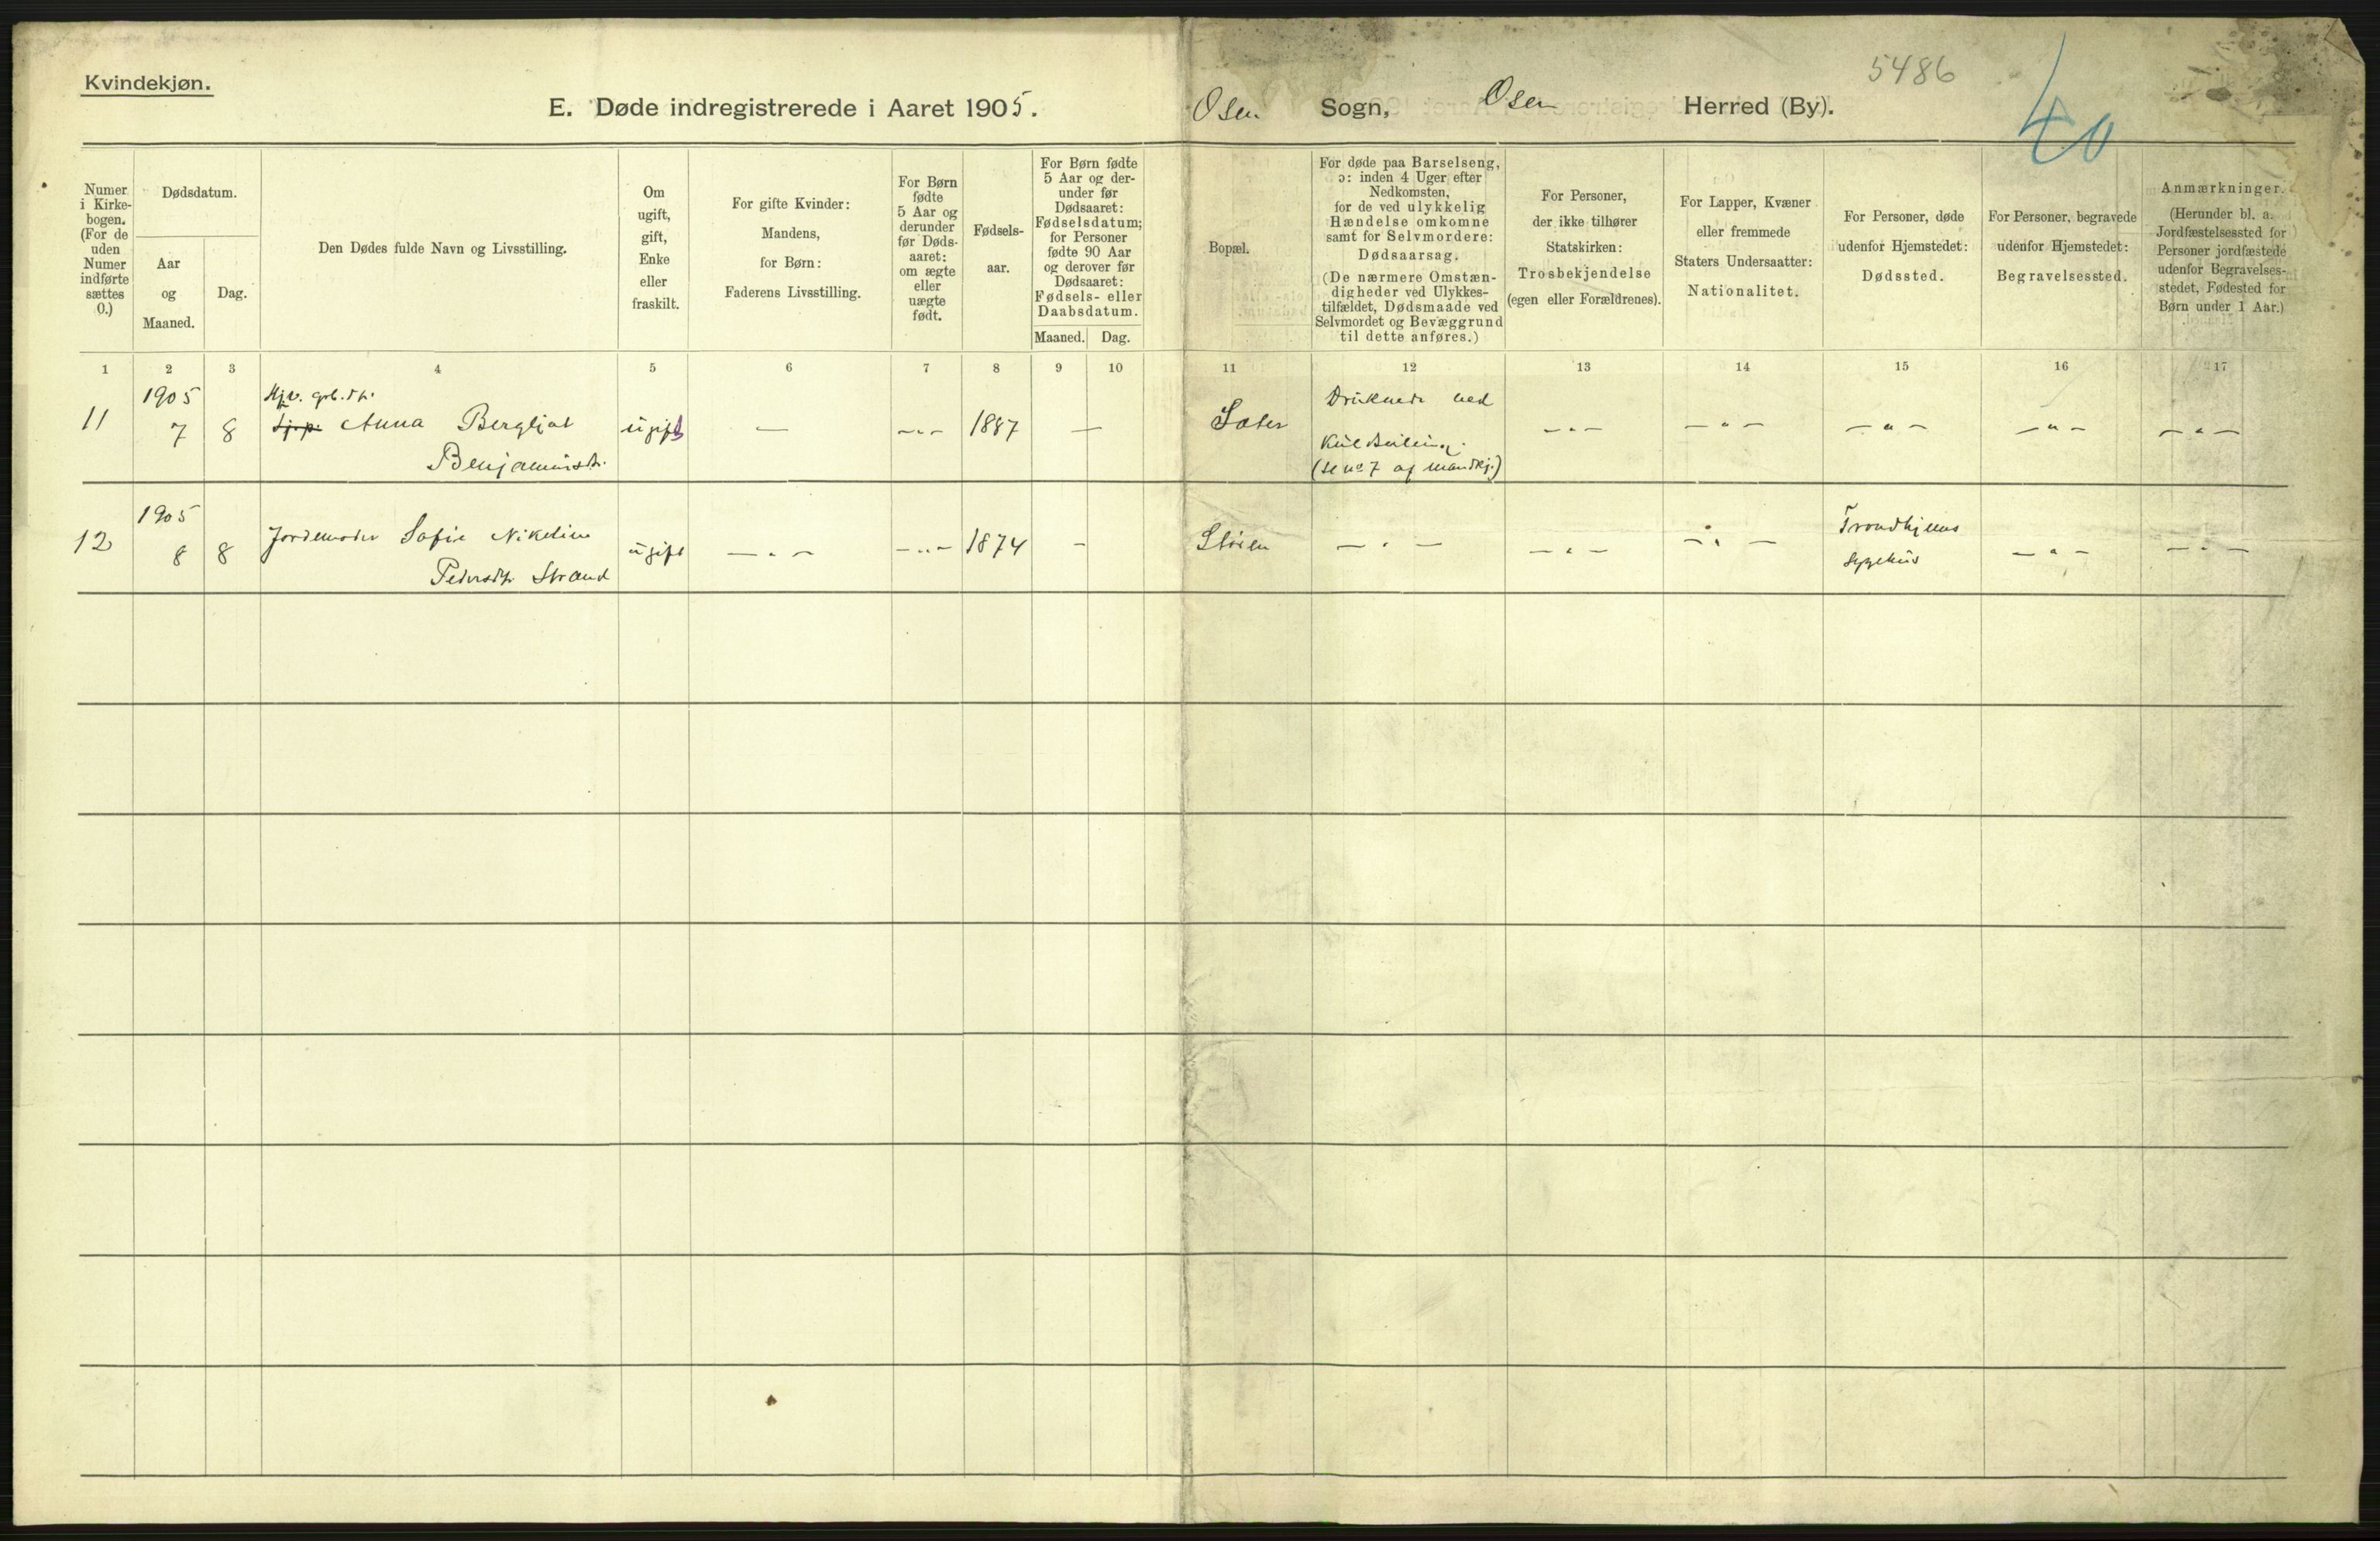 Kvindekjøn.
5486
40
E. Døde indregistrerede i Aaret 1905. Osen Sogn, Osen Herred (By).
Numer
i Kirke-
bogen.
(For de
uden
Numer
indførte
sættes
0.)
Dødsdatum.
Aar
og
Maaned.
Dag.
Den Dødes fulde Navn og Livsstilling.
Om
ugift,
gift,
Enke
eller
fraskilt.
For gifte Kvinder:
Mandens,
for Børn:
Faderens Livsstilling.
For Børn
fødte
5 Aar og
derunder
før Døds-
aaret:
om ægte
eller
uægte
født.
Fødsels-
aar.
For Børn fødte
5 Aar og der-
under før
Dødsaaret:
Fødselsdatum;
for Personer
fødte 90 Aar
og derover før
Dødsaaret:
Fødsels- eller
Daabsdatum.
Maaned. Dag.
Bopæl.
For døde paa Barselseng,
ɔ: inden 4 Uger efter
Nedkomsten,
for de ved ulykkelig
Hændelse omkomne
samt for Selvmordere:
Dødsaarsag.
(De nærmere Omstæn-
digheder ved Ulykkes-
tilfældet, Dødsmaade ved
Selvmordet og Bevæggrund
til dette anføres.)
For Personer,
der ikke tilhører
Statskirken:
Trosbekjendelse
(egen eller Forældrenes).
For Lapper, Kvæner
eller fremmede
Staters Undersaatter:
Nationalitet.
For Personer, døde
udenfor Hjemstedet:
Dødssted.
For Personer, begravede
udenfor Hjemstedet:
Begravelsessted.
Anmærkninger.
(Herunder bl. a.
Jordfæstelsessted for
Personer jordfæstede
udenfor Begravelses-
stedet, Fødested for
Børn under 1 Aar.)
1 2 3 4 5 6 7 8 9 10 11 12 13 14 15 16 17
1905
11 7 8
Anna Bergljot
Benjaminsdtr.
ugift — -„- 1887 —
Druknede ved
Kuldseiling.
(se no 7 af mandkj.)
-„- -„- -„- -„- -„-
1905
12 8 8
Jordemoder Sofie Nikoline
Pedersdtr. Strand
ugift -„- -„- 1874 -
Støien
-„- -„- -„-
Trondhjems
Sygehus
-„- -„-